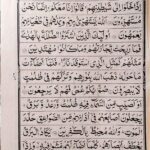 إِذَا خَلَوْا إِلَىٰ شَيٰطِينِهِمْ قَالُوا إِنَّا مَعَكُمْ إِنَّمَا نَحْنُ
مُسْتَهْزِءُونَ اللَّهُ يَسْتَهْزِئُ بِهِمْ وَيَمُدُّهُمْ فِي طُغْيَانِهِمْ
يَعْمَهُونَ أُولٰئِكَ الَّذِينَ اشْتَرَوُا الضَّلٰلَةَ بِالْهُدَىٰ
فَمَا رَبِحَتْ تِجَارَتُهُمْ وَمَا كَانُوا مُهْتَدِينَ مَثَلُهُمْ
كَمَثَلِ الَّذِي اسْتَوْقَدَ نَارًا فَلَمَّا أَضَاءَتْ
مَا حَوْلَهُ ذَهَبَ اللَّهُ بِنُورِهِمْ وَتَرَكَهُمْ فِي ظُلُمٰتٍ
لَا يُبْصِرُونَ صُمٌّ بُكْمٌ عُمْيٌ فَهُمْ لَا يَرْجِعُونَ
أَوْ كَصَيِّبٍ مِنَ السَّمَاءِ فِيهِ ظُلُمٰتٌ وَرَعْدٌ وَبَرْقٌ
يَجْعَلُونَ أَصَابِعَهُمْ فِي آذَانِهِمْ مِنَ الصَّوَاعِقِ حَذَرَ
الْمَوْتِ وَاللَّهُ مُحِيطٌ بِالْكٰفِرِينَ يَكَادُ الْبَرْقُ